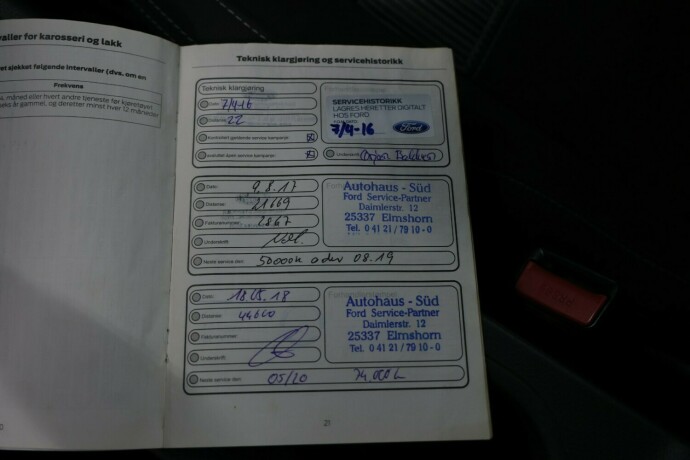 aller for karosseri og lakk
et sjekket følgende intervaller (dvs. om en
Frekvens
måned eller hvert andre tjeneste før kjøretøyet
år gammel, og deretter minst hver 12 måneder
Teknisk klargjøring og servicehistorikk
Teknisk klargjøring
Dato: 7/4-16
Distanse: 22
Kontrollert gjeldende service kampanjer:
SERVICEHISTORIKK
LAGRES HERETTER DIGITALT
HOS FORD
7/4-16
Ford
Underskrift:
Dato: 9.8.17
Distanse: 21669
Fakturanummer: 2867
Underskrift:
Neste service den: 50000k oder 08.19
Autohaus - Süd
Ford Service-Partner
Daimlerstr. 12
25337 Elmshorn
Tel. 0 41 21 / 79 10 - 0
Dato: 18.05.18
Distanse: 44600
Fakturanummer:
Underskrift:
Neste service den: 05/20 74.000k
Autohaus - Süd
Ford Service-Partner
Daimlerstr. 12
25337 Elmshorn
Tel. 0 41 21 / 79 10 - 0
21